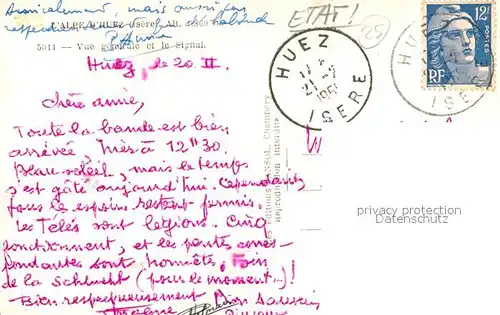 Amicalement, mais aussi pas
respectueusement
L'ALPE D'HUEZ (Isère) Alt. 1860
5011 - Vue générale et le Signal.
ETAT!
25
HUEZ
21-2
ISERE
HUEZ
ISERE
12F
RF
Huez, le 20 II.
Chère amie,
Toute la bande est bien
arrivée hier à 12H30.
Beau soleil, mais le temps
s'est gâté aujourd'hui. Cependant
tous les espoirs restent permis.
Les Télés sont légions. Cinq
fonctionnent, et les pentes corres-
pondantes sont honnêtes. Loin
de la Schlucht (pour le moment...)!
Bien respectueusement Bon Souvenir
Reproduction interdite
privacy protection
Datenschutz